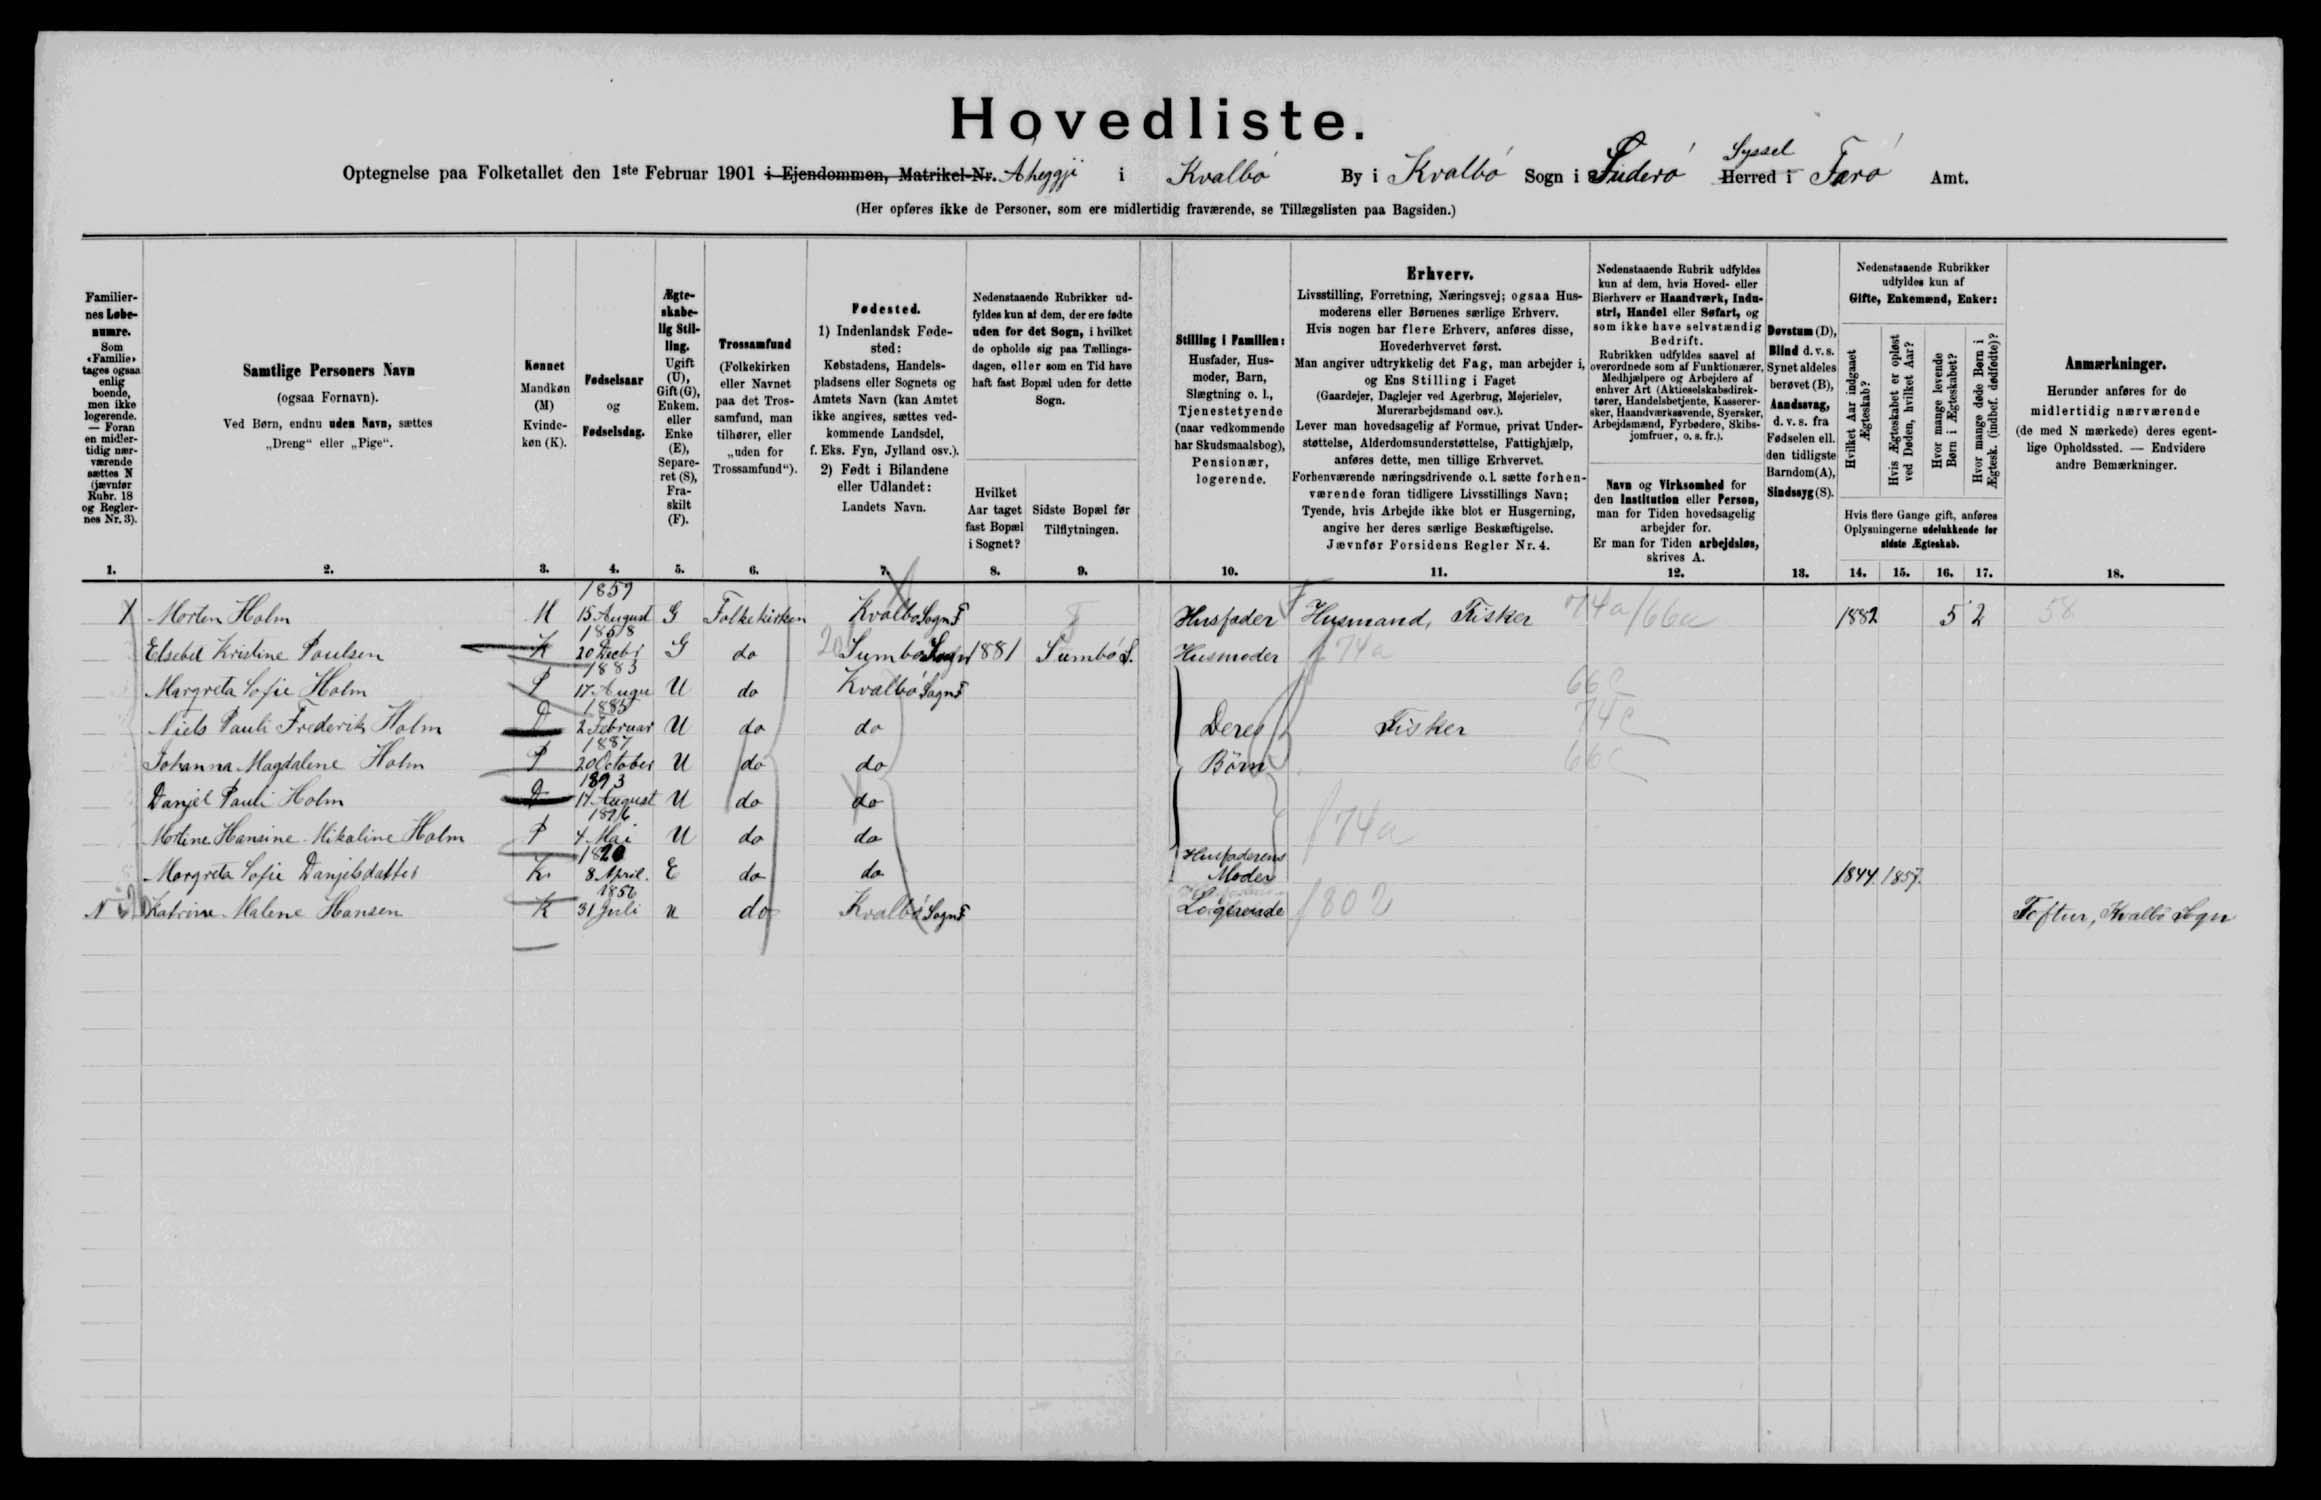 Hovedliste.
Optegnelse paa Folketallet den 1ste Februar 1901 i Ejendommen, Matrikel-Nr. Aheggji i Kvalbö By i Kvalbö Sogn i Suderö Syssel Herred i Færö Amt.
(Her opføres ikke de Personer, som ere midlertidig fraværende, se Tillægslisten paa Bagsiden.)
Familier-
nes Løbe-
numre.
Som
«Familie»
tages ogsaa
enlig
boende,
men ikke
logerende.
— Foran
en midler-
tidig nær-
værende
sættes N
(jævnfør
Rubr. 18
og Regler-
nes Nr. 3).
1.
Samtlige Personers Navn
(ogsaa Fornavn).
Ved Børn, endnu uden Navn, sættes
„Dreng“ eller „Pige“.
2.
Kønnet
Mandkøn
(M)
Kvinde-
køn (K).
3.
Fødselsaar
og
Fødselsdag.
4.
Ægte-
skabe-
lig Stil-
ling.
Ugift
(U),
Gift (G),
Enkem.
eller
Enke
(E),
Separe-
ret (S),
Fra-
skilt
(F).
5.
Trossamfund
(Folkekirken
eller Navnet
paa det Tros-
samfund, man
tilhører, eller
„uden for
Trossamfund“).
6.
Fødested.
1) Indenlandsk Føde-
sted:
Købstadens, Handels-
pladsens eller Sognets og
Amtets Navn (kan Amtet
ikke angives, sættes ved-
kommende Landsdel,
f. Eks. Fyn, Jylland osv.).
2) Født i Bilandene
eller Udlandet:
Landets Navn.
7.
Nedenstaaende Rubrikker ud-
fyldes kun af dem, der ere fødte
uden for det Sogn, i hvilket
de opholde sig paa Tællings-
dagen, eller som en Tid have
haft fast Bopæl uden for dette
Sogn.
Hvilket
Aar taget
fast Bopæl
i Sognet?
8.
Sidste Bopæl før
Tilflytningen.
9.
Stilling i Familien:
Husfader, Hus-
moder, Barn,
Slægtning o. l.,
Tjenestetyende
(naar vedkommende
har Skudsmaalsbog),
Pensionær,
logerende.
10.
Erhverv.
Livsstilling, Forretning, Næringsvej; ogsaa Hus-
moderens eller Børnenes særlige Erhverv.
Hvis nogen har flere Erhverv, anføres disse,
Hovederhvervet først.
Man angiver udtrykkelig det Fag, man arbejder i,
og Ens Stilling i Faget
(Gaardejer, Daglejer ved Agerbrug, Mejerielev,
Murerarbejdsmand osv.).
Lever man hovedsagelig af Formue, privat Under-
støttelse, Alderdomsunderstøttelse, Fattighjælp,
anføres dette, men tillige Erhvervet.
Forhenværende næringsdrivende o. l. sætte forhen-
værende foran tidligere Livsstillings Navn;
Tyende, hvis Arbejde ikke blot er Husgerning,
angive her deres særlige Beskæftigelse.
Jævnfør Forsidens Regler Nr. 4.
11.
Nedenstaaende Rubrik udfyldes
kun af dem, hvis Hoved- eller
Bierhverv er Haandværk, Indu-
stri, Handel eller Søfart, og
som ikke have selvstændig
Bedrift.
Rubrikken udfyldes saavel af
overordnede som af Funktionærer,
Medhjælpere og Arbejdere af
enhver Art (Aktieselskabsdirek-
tører, Handelsbetjente, Kasserer-
sker, Haandværkssvende, Syersker,
Arbejdsmænd, Fyrbødere, Skibs-
jomfruer, o. s. fr.).
Navn og Virksomhed for
den Institution eller Person,
man for Tiden hovedsagelig
arbejder for.
Er man for Tiden arbejdsløs,
skrives A.
12.
Døvstum (D),
Blind d. v. s.
Synet aldeles
berøvet (B),
Aandssvag,
d. v. s. fra
Fødselen ell.
den tidligste
Barndom (A),
Sindssyg (S).
13.
Nedenstaaende Rubrikker
udfyldes kun af
Gifte, Enkemænd, Enker:
Hvilket Aar indgaaet
Ægteskab?
Hvis Ægteskabet er opløst
ved Døden, hvilket Aar?
Hvor mange levende
Børn i Ægteskabet?
Hvor mange døde Børn i
Ægtesk. (indbef. dødfødte)?
Hvis flere Gange gift, anføres
Oplysningerne udelukkende for
sidste Ægteskab.
14. 15. 16. 17.
Anmærkninger.
Herunder anføres for de
midlertidig nærværende
(de med N mærkede) deres egent-
lige Opholdssted. — Endvidere
andre Bemærkninger.
18.
1 Morten Holm M 1859 15 August G Folkekirken Kvalbö Sogn F Husfader Husmand, Fisker 74a/66a 1882 5 2 58
Elsebet Kristine Poulsen K 1858 20 Decbr G do Sumbö Sogn 1881 Sumbö S. Husmoder 74a
Margreta Sofie Holm P 1883 17 Augu U do Kvalbö Sogn F 66c
Niels Pauli Frederik Holm D 1885 2 Februar U do do Deres Fisker 74c
Johanna Magdalene Holm P 1887 20 October U do do Börn 66c
Danjel Pauli Holm D 1893 17 August U do do
Mortine Hansine Mikaline Holm P 1896 4 Mai U do do 74a
Margreta Sofie Danjelsdatter K 1820 8 April. E do do Husfaderens Moder 1844. 1857.
N Katrine Malene Hansen K 1856 31 Juli u do Kvalbö Sogn F Logerende 802 Toftur, Kvalbö Sogn